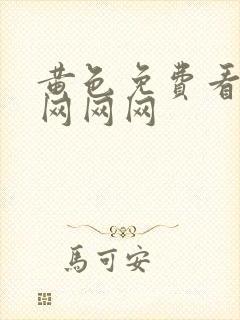 黄色免費看
网网网
馬可安